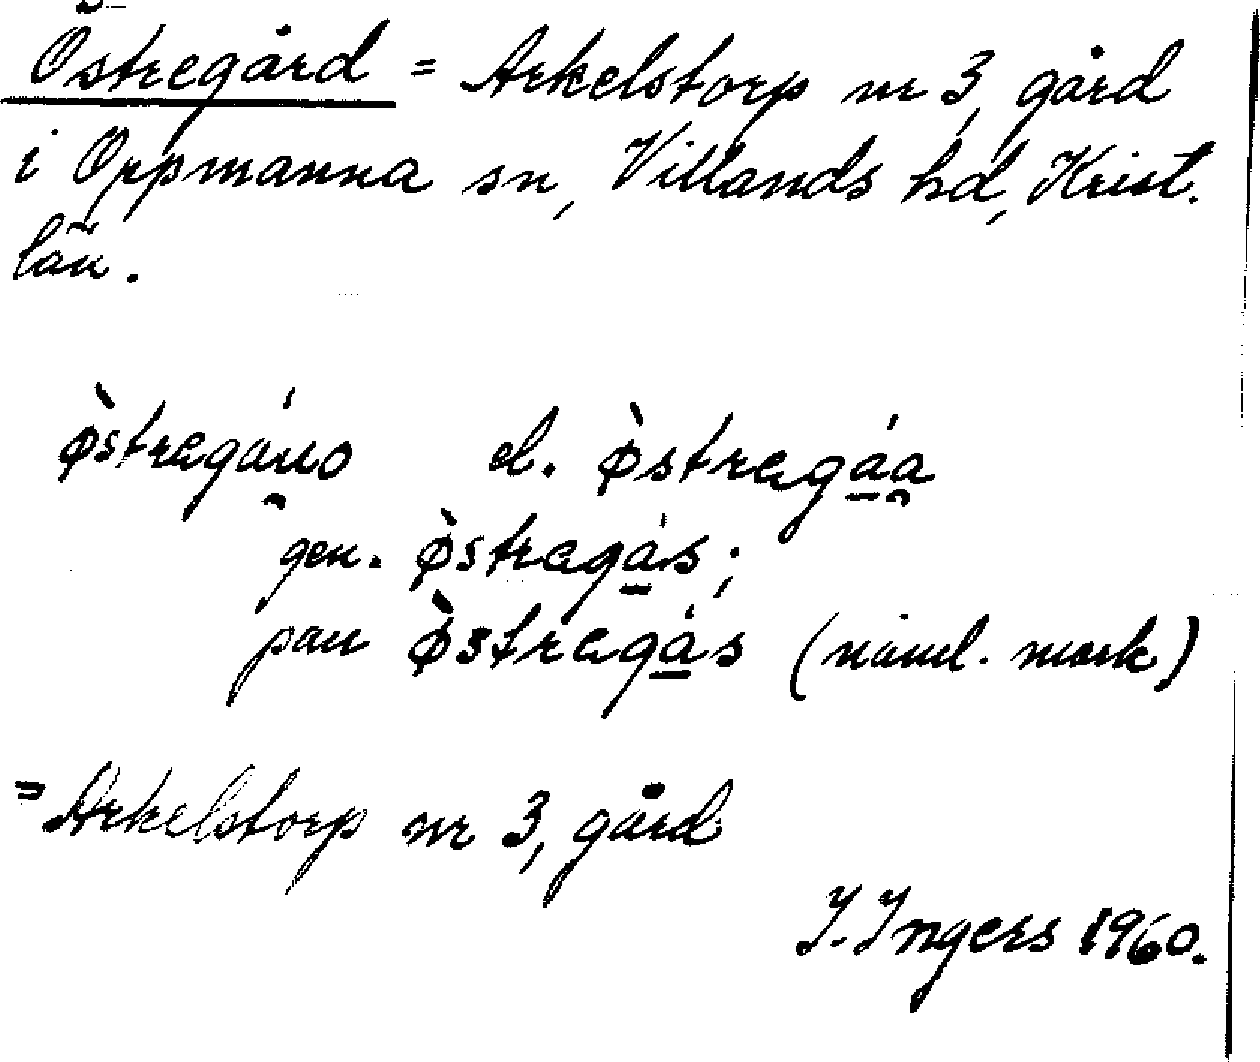 Östregård = Arkelstorp nr 3, gård
i Oppmanna sn, Villands hd, Krist.
län.
ø̀stregáu̯o el. ø̀stregá̱a̯
gen. ø̀stregá̱s;
pau ø̀stregá̱s (näml. mark)
= Arkelstorp nr 3, gård
I. Ingers 1960.